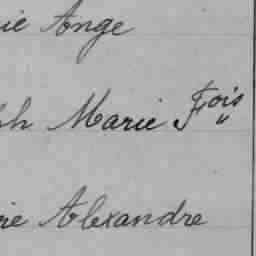 ie Ange
ph Marie Fois
rie Alexandre